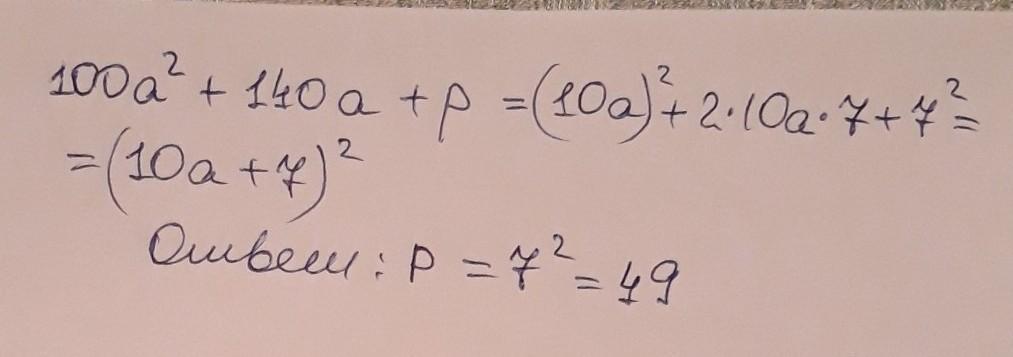 100a² + 140a + p = (10a)² + 2·10a·7 + 7² =
= (10a + 7)²
Ответ: p = 7² = 49